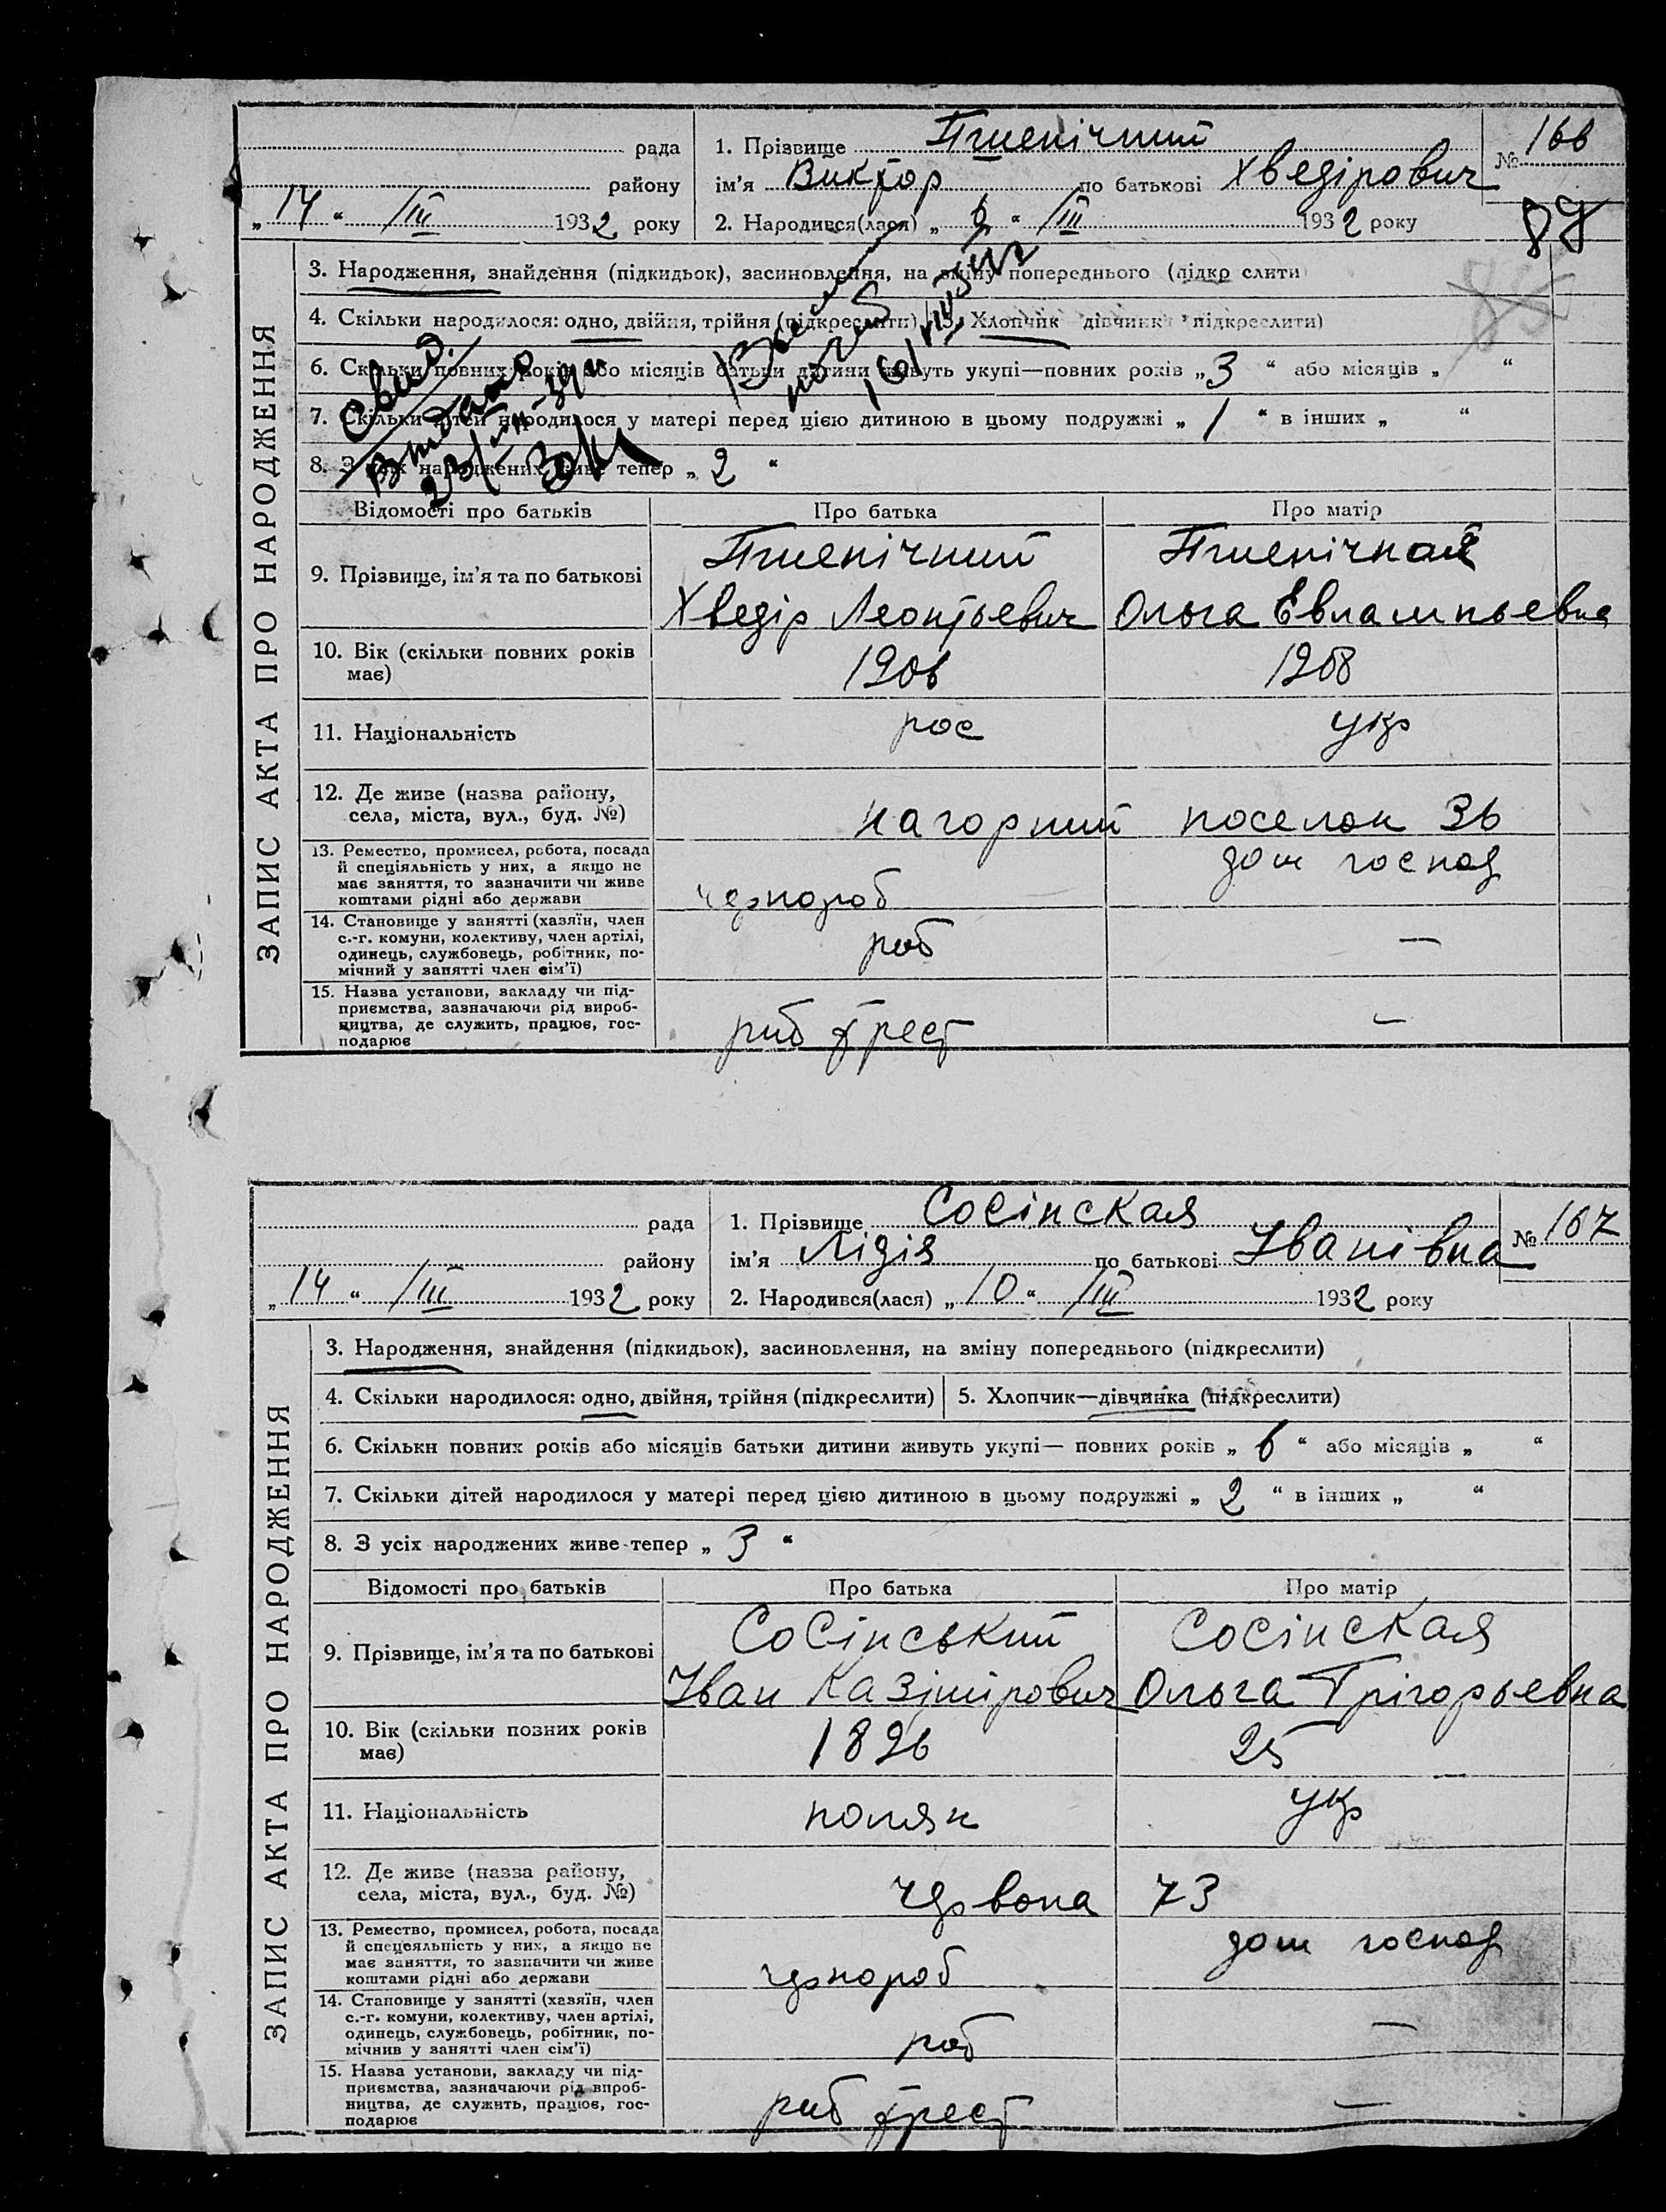 рада
району
„ 14 “ /III 1932 року
1. Прізвище Пшенічний
ім’я Виктор по батькові Хведірович
2. Народився(лася) „ 6 “ /III 1932 року
№ 166
89
ЗАПИС АКТА ПРО НАРОДЖЕННЯ
3. Народження, знайдення (підкидьок), засиновлення, на зміну попереднього (підкр слити
4. Скільки народилося: одно, двійня, трійня (підкреслити) 5. Хлопчик дівчинк підкреслити)
6. Скільки повних років або місяців батьки дитини живуть укупі—повних років „ 3 “ або місяців „ “
7. Скільки дітей народилося у матері перед цією дитиною в цьому подружжі „ 1 “ в інших „ “
8. З усіх народжених живе тепер „ 2 “
Відомості про батьків Про батька Про матір
9. Прізвище, ім’я та по батькові
Пшенічний
Хведір Леонтьевич
Пшенічная
Ольга Евлампьевна
10. Вік (скільки повних років
має)
1906 1908
11. Національність рос укр
12. Де живе (назва району,
села, міста, вул., буд. №)
нагорний поселок 36
13. Ремество, промисел, робота, посада
й спеціяльність у них, а якщо не
має заняття, то зазначити чи живе
коштами рідні або держави
чернороб
дом господ
14. Становище у занятті (хазяїн, член
с.-г. комуни, колективу, член артілі,
одинець, службовець, робітник, по-
мічний у занятті член сім’ї)
роб —
15. Назва установи, закладу чи під-
приємства, зазначаючи рід вироб-
ництва, де служить, працює, гос-
подарює
риб трест —
рада
району
„ 14 “ /III 1932 року
1. Прізвище Сосінская
ім’я Лідія по батькові Іванівна
2. Народився(лася) „ 10 “ /III 1932 року
№ 167
ЗАПИС АКТА ПРО НАРОДЖЕННЯ
3. Народження, знайдення (підкидьок), засиновлення, на зміну попереднього (підкреслити)
4. Скільки народилося: одно, двійня, трійня (підкреслити) 5. Хлопчик—дівчинка (підкреслити)
6. Скількн повних років або місяців батьки дитини живуть укупі— повних років „ 6 “ або місяців „ “
7. Скільки дітей народилося у матері перед цією дитиною в цьому подружжі „ 2 “ в інших „ “
8. З усіх народжених живе тепер „ 3 “
Відомості про батьків Про батька Про матір
9. Прізвище, ім’я та по батькові
Сосінський
Іван Казімірович
Сосінская
Ольга Грігорьевна
10. Вік (скільки повних років
має)
1896 25
11. Національність поляк укр
12. Де живе (назва району,
села, міста, вул., буд. №)
Червона 73
13. Ремество, промисел, робота, посада
й спецеяльність у них, а якщо не
має заняття, то зазначити чи живе
коштами рідні або держави
чернороб
дом господ
14. Становище у занятті (хазяїн, член
с.-г. комуни, колективу, член артілі,
одинець, службовець, робітник, по-
мічнив у занятті член сім’ї)
роб —
15. Назва установи, закладу чи під-
приємства, зазначаючи рід вироб-
ництва, де служить, працює, гос-
подарює
риб трест —